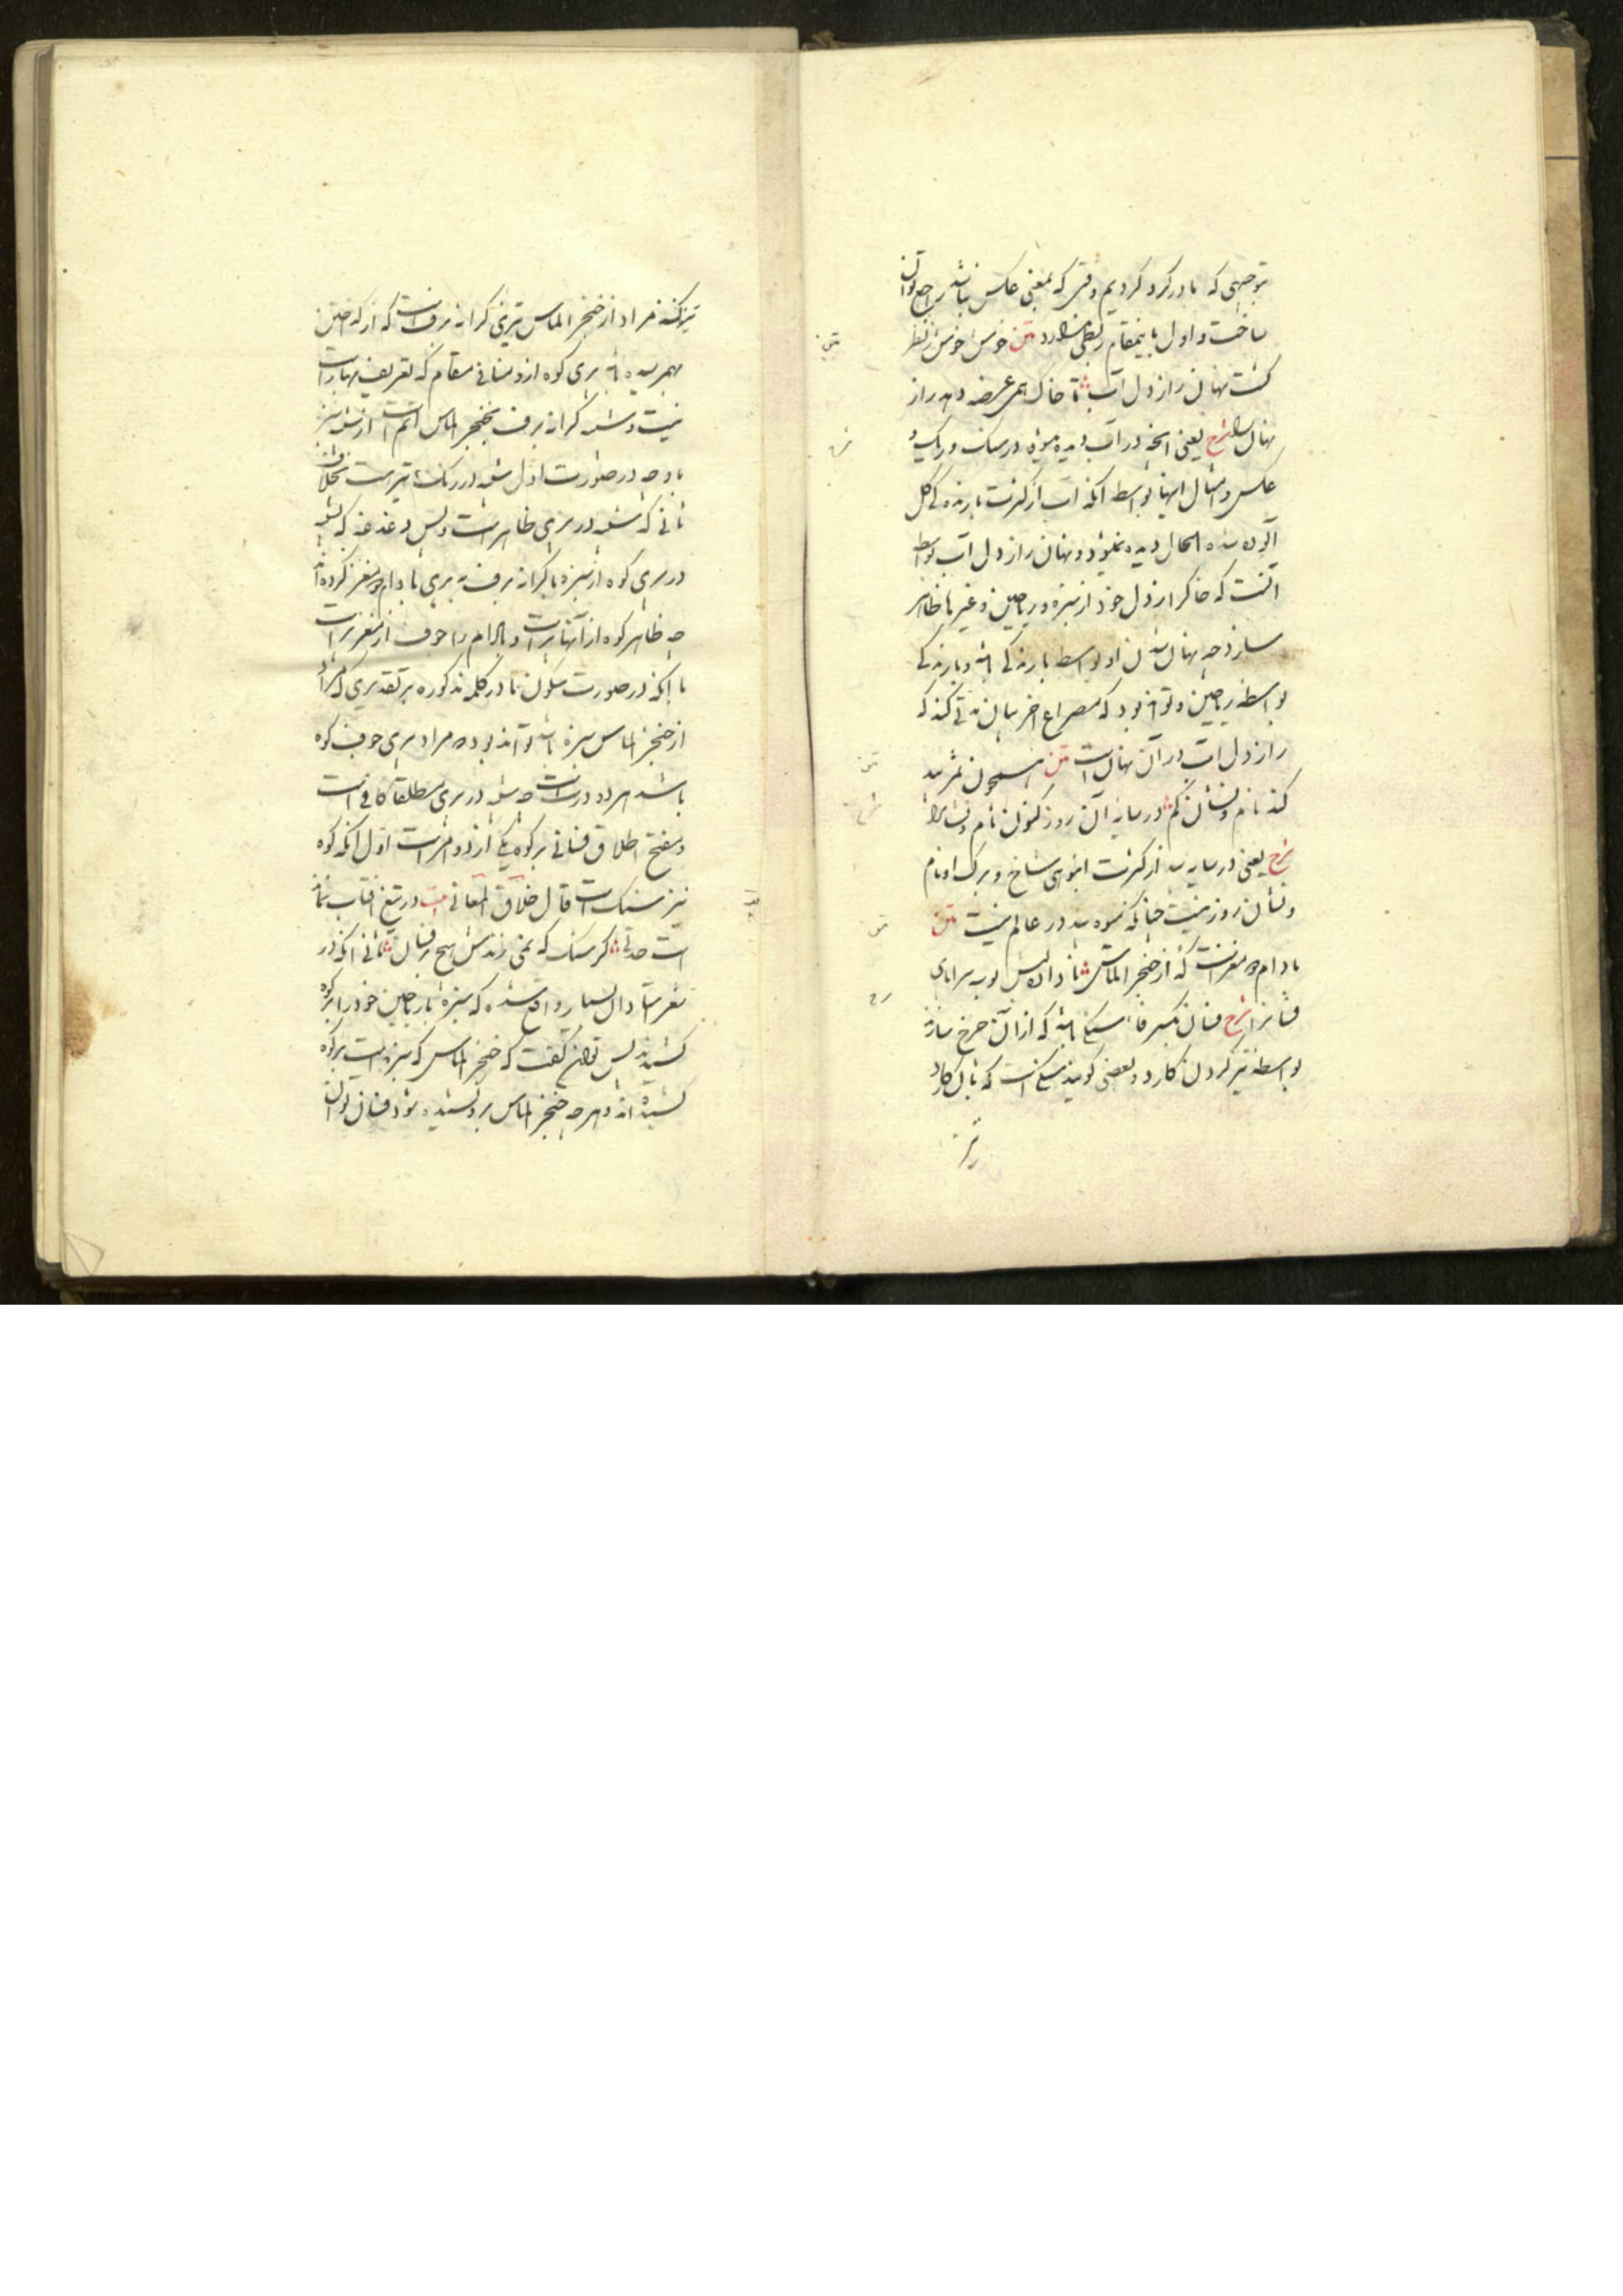 توجیهی که ما در کرد کردیم وقتی که بمعنی عکس باشد راجع توان
ساخت و اول باینمقام ربطی ندارد متن خوش خوش ز نظر
گشت نهان راز دل آب تا خاک همی عرضه دهد راز
نهان را شرح یعنی آنچه در آب دیده میشود در سنک و ریک و
عکس و امثال اینها بواسطه آنکه آب از کثرت بارندگی گل
آلود شده الحال دیده نمیشود و نهان راز دل آب بواسطه
آنست که خاک راز دل خود از سبزه و ریاحین و غیرها ظاهر
سازد چه نهان شدن او بواسطه بارندگی باشد و بارندگی
بواسطه ریاحین و تواند بود که مصراع آخر بیان مدتی کند که
راز دل آب در آن نهان است متن همچون ثمر بید
کند نام و نشان گم در سایه آن روز کنون نام و نشان را
شرح یعنی در سایه بید از کثرت انبوهی شاخ و برک او نام
و نشان روز نیست چنانکه میوه بید در عالم نیست متن
بادام دو مغزست که از خنجر الماس نا داده لبش بوسه سراپای
فسانرا شرح فسان بکسر فا سنگی باشد که از آن چرخ سازند
بواسطه تیز کردن کارد و بعضی گویند سنگیست که بآن کارد
تیز کنند مراد از خنجر الماس تیزی کرانه برفست که از که
بهم رسیده باشد بری کوه ازو منافی مقام که تعریف بهار است
نیست و تشبیه کرانه برف بخنجر الماس اتم است از تشبیه سبزه
باو چه در صورت اول تشبیه در رنک و تیزیست بخلاف
ثانی که تشبیه در تیزی ظاهر است و بس و دغدغه که تشبیه
در پری کوه از سبزه یا کرانه برف به پری بادام دو مغز کرده اند
چه ظاهر کوه از آنها پر است و بادام را جوف از مغز پر است
با آنکه در صورت سکون نا در کلمه مذکوره بر تقدیری که مراد
از خنجر الماس سبزه باشد تواند بود که مراد پری جوف کوه
باشد هر دو درست است چه تشبیه در پری مطلقا کافی است
و مفتح اطلاق فسانی بر کوه یکی از دو امر است اول آنکه کوه
نیز سنک است قال خلاق المعانی بیت در تیغ آفتاب نماند
است حدتی گر سنک که نمی زندش هیچ بر فسان ثانی آنکه در
شعر استادان بسیار واقع شده که سبزه یا ریاحین خود را بر کوه
کشیدند پس توان گفت که خنجر الماس که سبزه است بر کوه
کشیده اند و هر چه خنجر الماس برو کشیده شود فسان توان